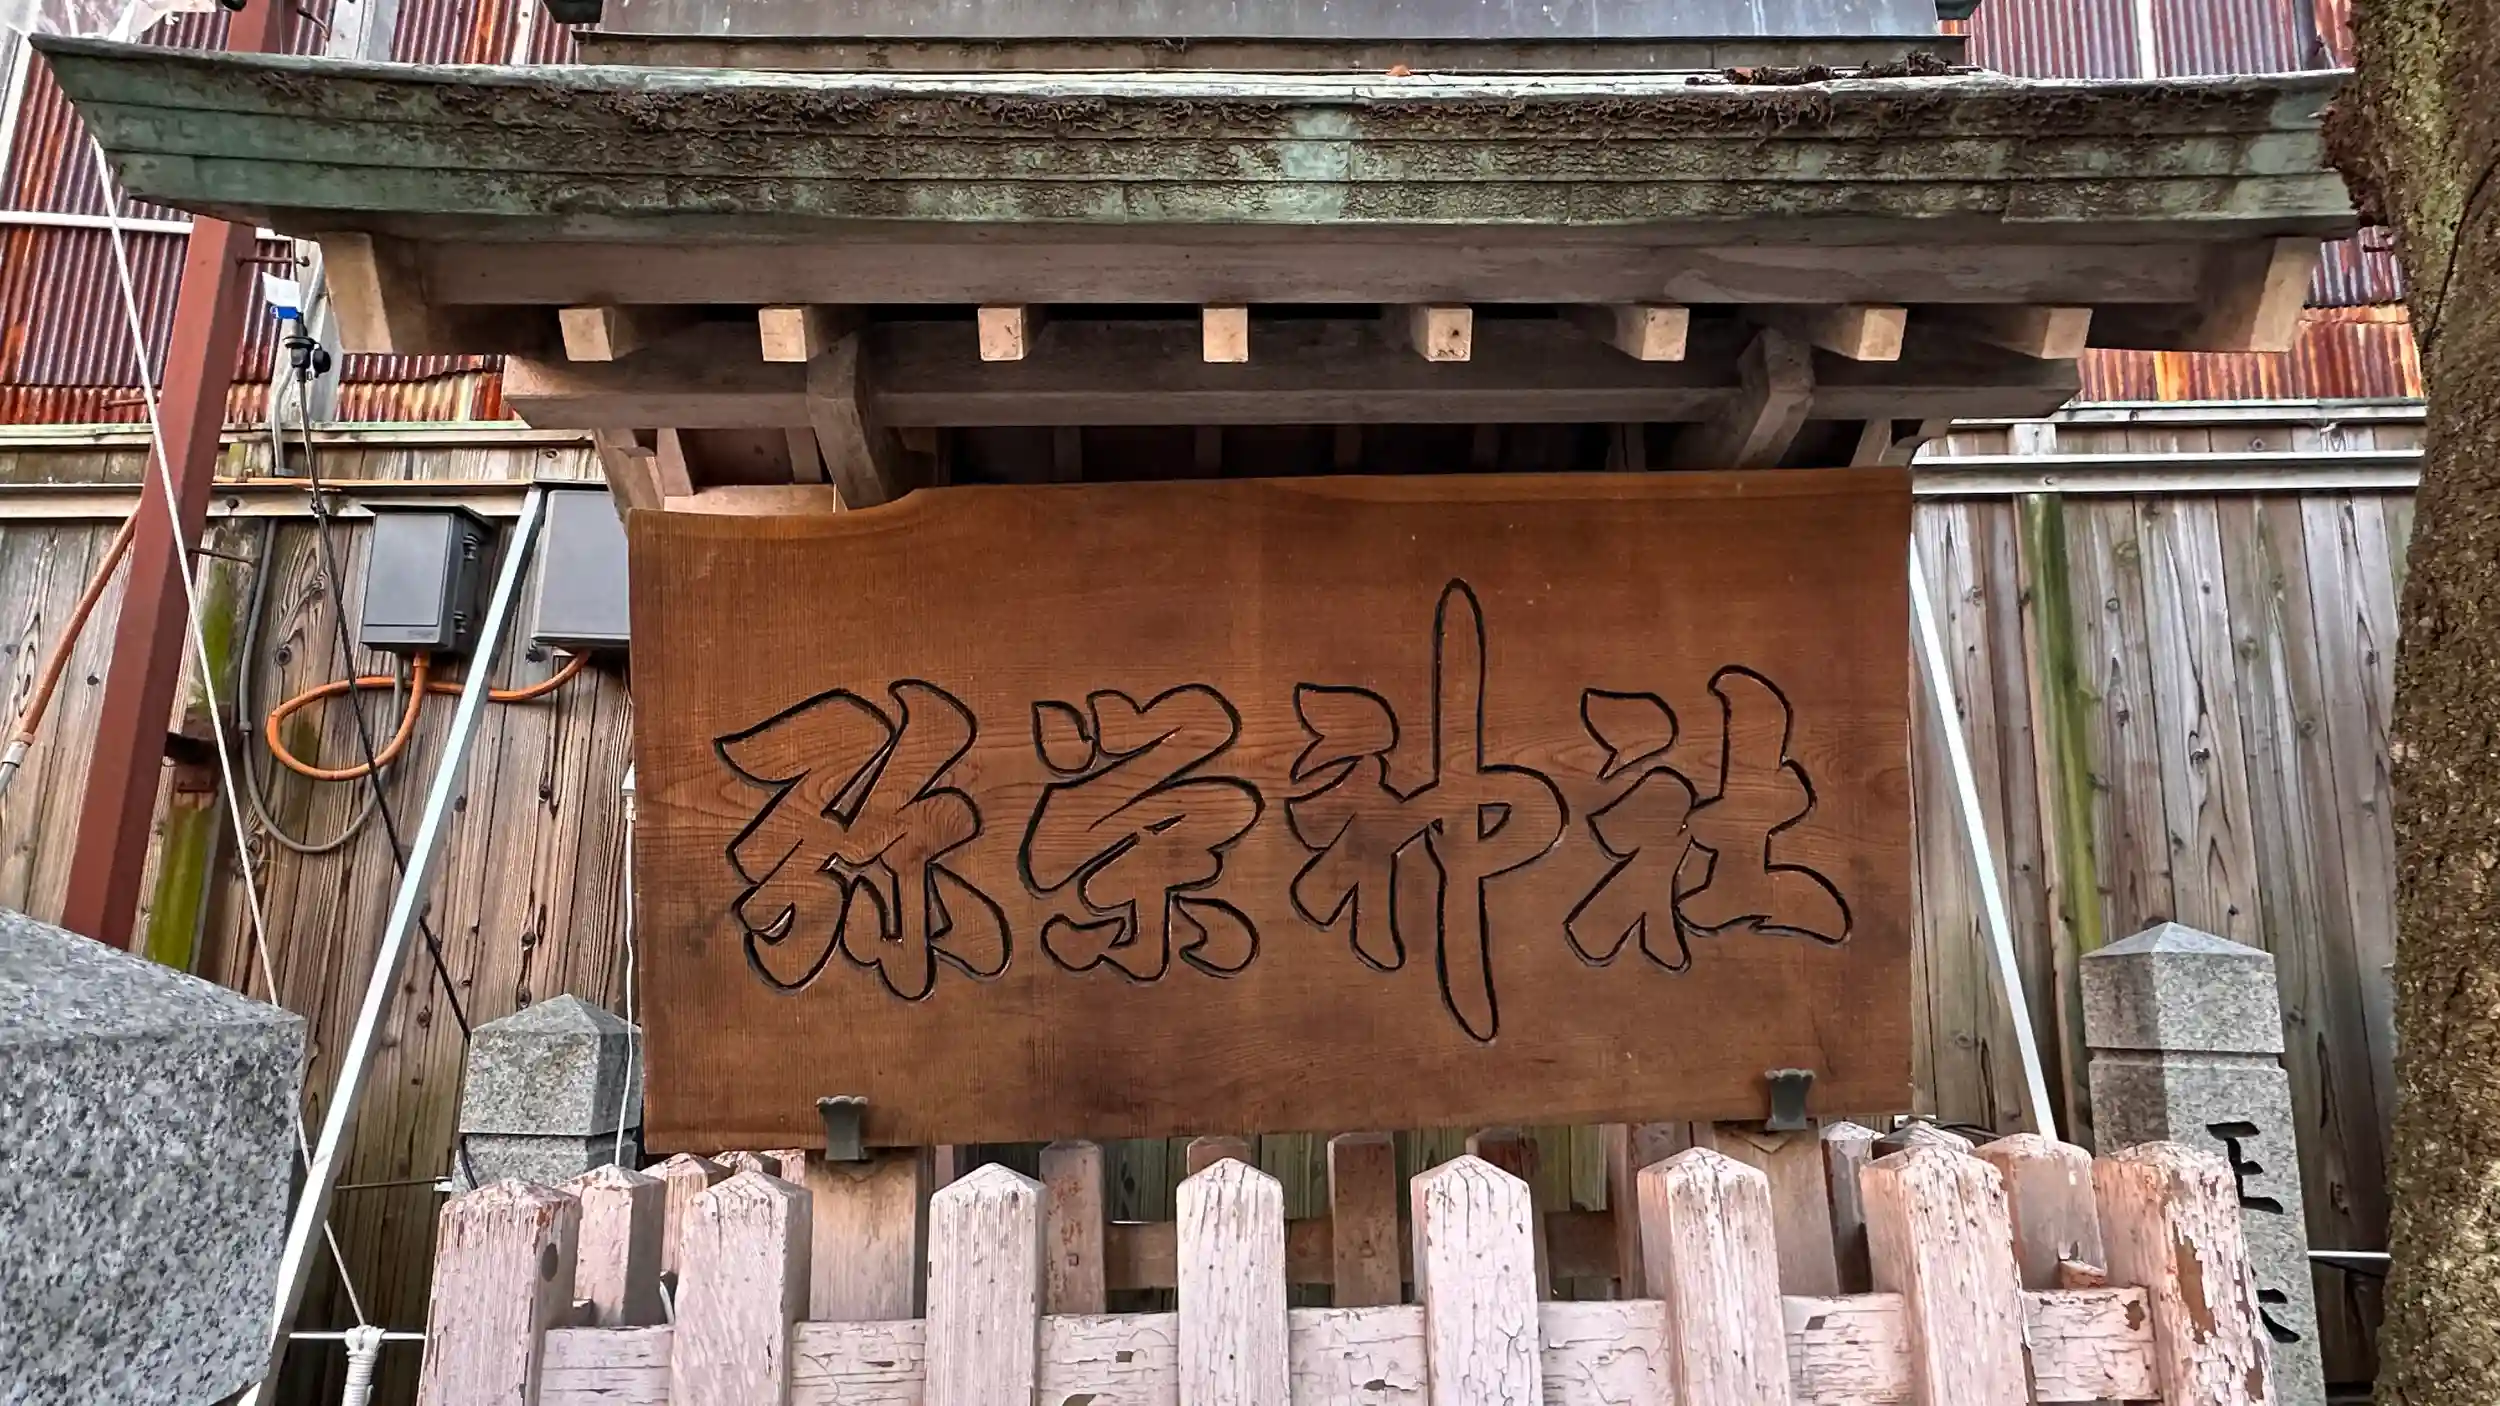 弥栄神社